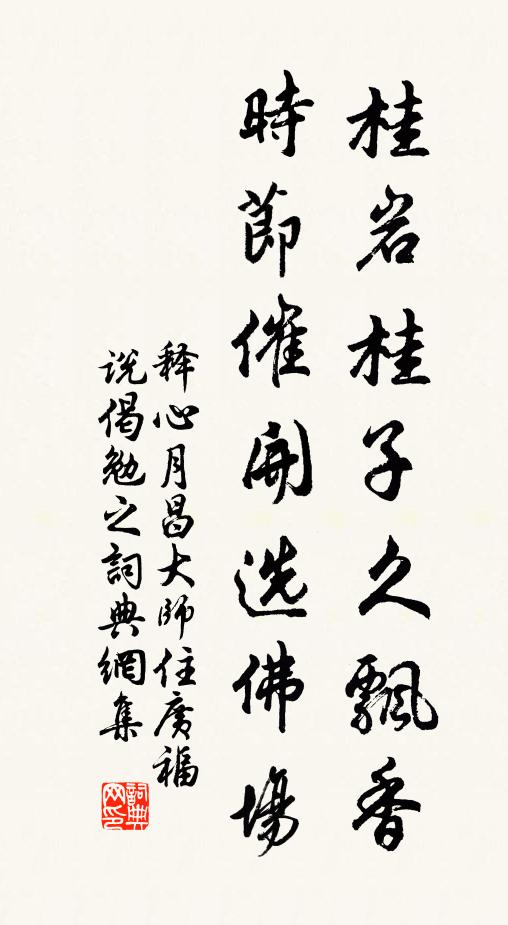 桂岩桂子久飄香
時節催開选佛場
释心月昌大師住廣福
说偈勉之詞典網集
詞典
网印